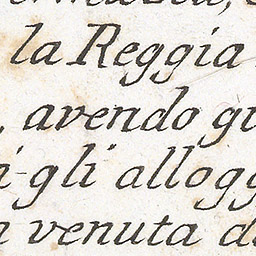 la Reggia
, avendo gu
i gli allogg
venuta d